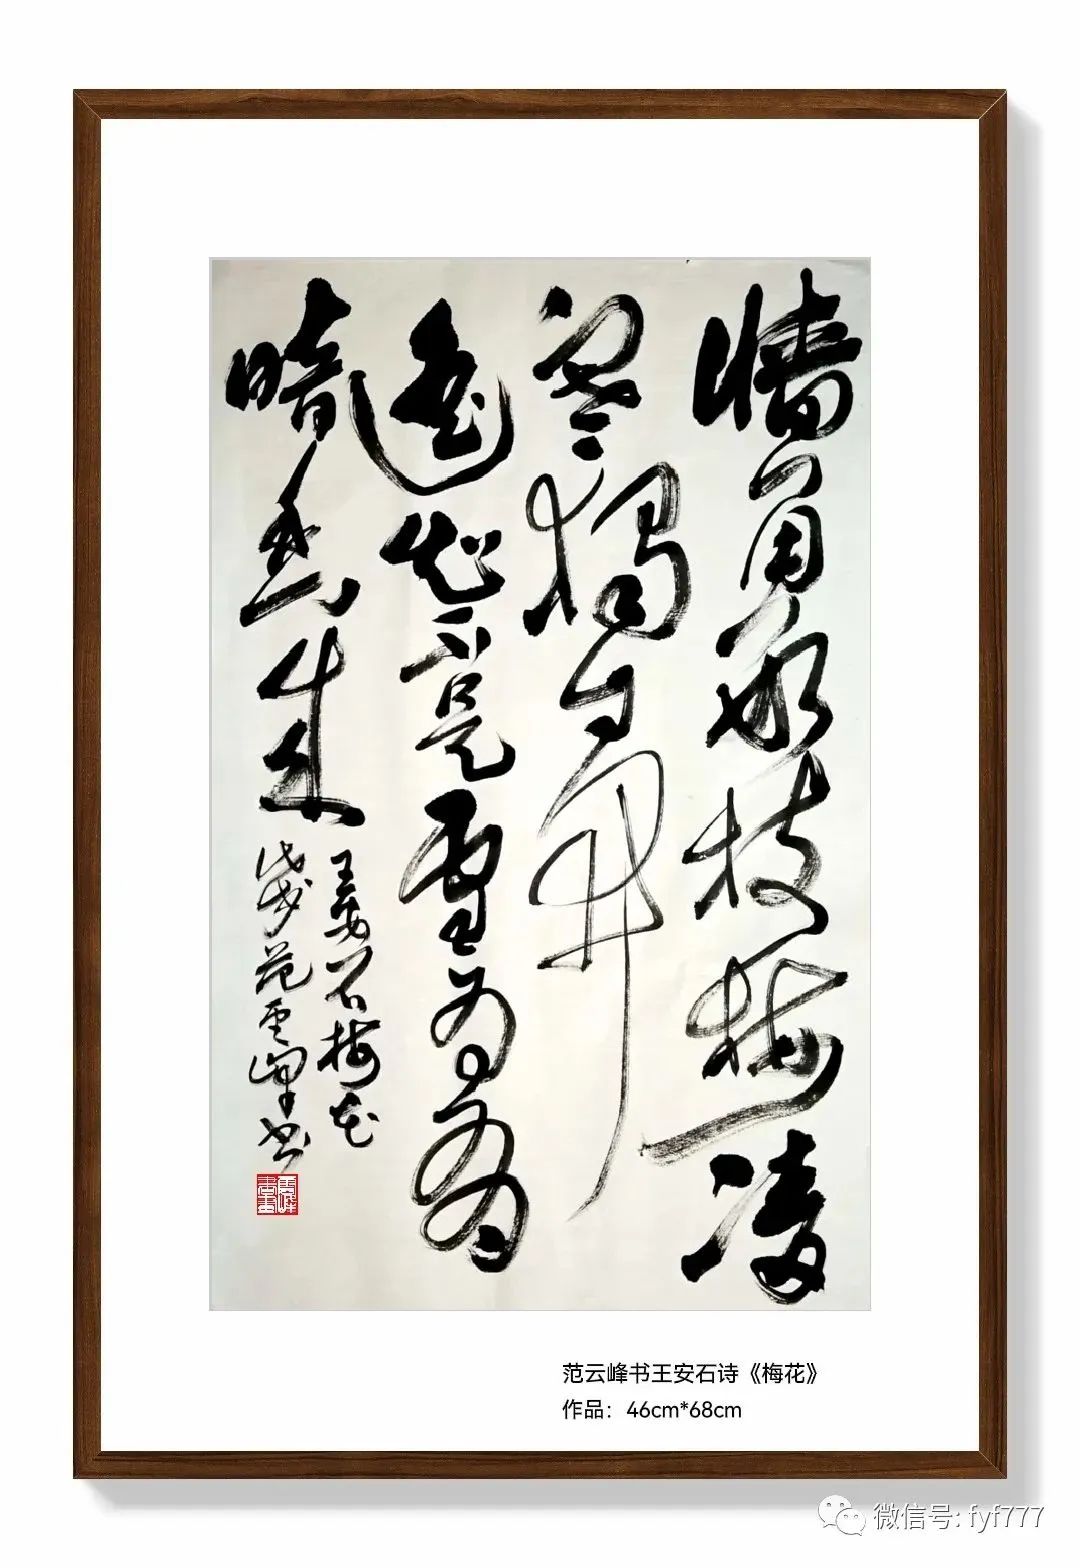 牆角數枝梅凌
寒獨自開
遥知不是雪為有
暗香来
王安石梅花
范雲峰書
范云峰书王安石诗《梅花》
作品：46cm*68cm
微信号: fyf777